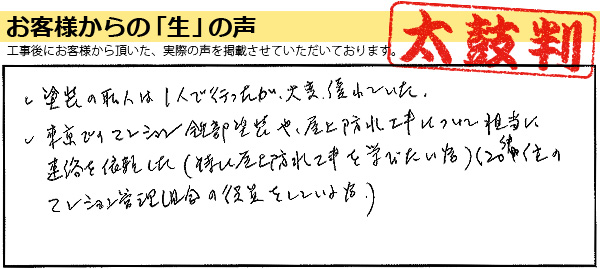 お客様からの「生」の声
太鼓判
工事後にお客様から頂いた、実際の声を掲載させていただいております。
・塗装の職人は1人で行ったが、大変優れていた。
・東京でのマンション鉄部塗装や、屋上防水工事について担当に
連絡を依頼した(特に屋上防水工事を学びたい為)(20 住の
マンション管理組合の役員をしている為。)